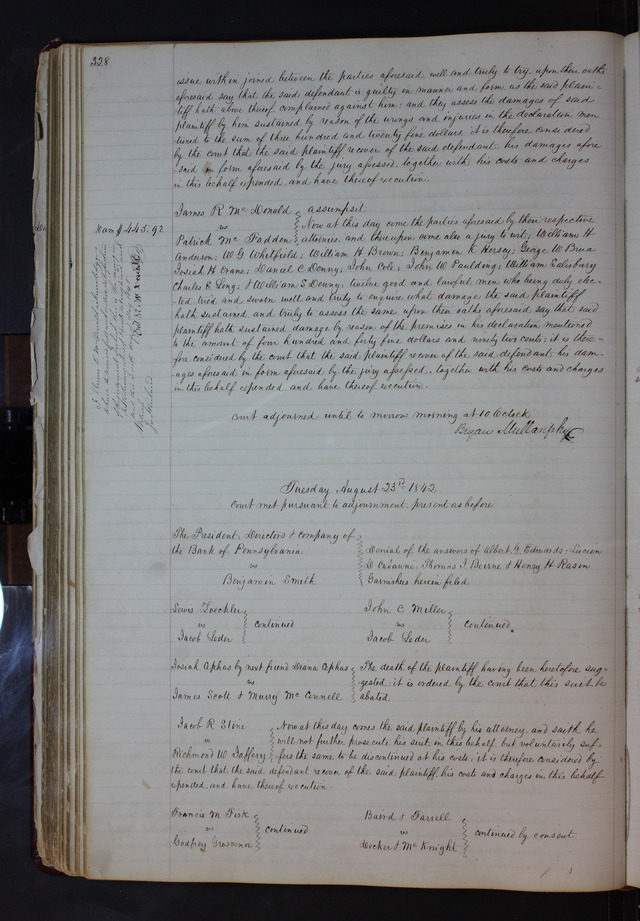 228
issue within joined between the parties aforesaid well and truly to try, upon their oaths
aforesaid say that the said defendant is guilty in manner and form as the said plain=
tiff hath above thereof complained against him: and they assess the damages of said
plaintiff by him sustained by reason of the wrongs and injuries in the declaration men
tioned to the sum of three hundred and twenty five dollars it is therefore considered
by the court that the said plaintiff recover of the said defendant his damages afore
said in form aforesaid by the jury assessed, together with his costs and charges
in this behalf expended, and have thereof execution.
James R Mc Donald assumpsit
vs Now at this day come the parties aforesaid by their respective
Patrick Mc Fadden attornies, and thereupon come also a jury to wit; William H
Dam $445.92
Anderson; W G Whitfield; William H Brown; Benjamin K Hersey; George W
Josiah H Crane; Daniel C Denny; John Cole; John W Paulding; William Salisbury
Charles E Long; & William S Denny; twelve good and lawful men who being duly elec=
ted tried and sworn well and truly to enquire what damage the said plaintiff
hath sustained, and truly to assess the same, upon their oaths aforesaid say that said
plaintiff hath sustained damage by reason of the premises in his declaration mentioned
to the amount of four hundred and forty five dollars and ninety two cents: it is there=
fore considered by the court that the said plaintiff recover of the said defendant his dam=
ages aforesaid in form aforesaid by the jury assessed, together with his costs and charges
in this behalf expended and have thereof execution.
court adjourned until to morrow morning at 10 Oclock
Bryan Mullanphy
Tuesday August 23rd 1842
court met pursuant to adjournment, present as before
The President, Directors & company of
the Bank of Pennsylvania
vs
Benjamin Smith
Denial of the answers of Albert G Edwards, Lucien
D Cabanne, Thomas J Beirne & Henry H Rason
Garnishees herein filed
Lewis Zoeckler
vs continued
Jacob Leder
John C Miller
vs continued
Jacob Leder
Josiah Cephas by next friend Diana Cephas
vs
James Scott & Murry Mc Connell
The death of the plaintiff having been heretofore sug=
gested; it is ordered by the court that this suit be
abated
Jacob R Stine Now at this day comes the said plaintiff by his attorney, and saith he
vs will not further prosecute his suit in this behalf but voluntarily suf=
Richmond W Jaffery fers the same to be discontinued at his costs: it is therefore considered by
the court that the said defendant recover of the said plaintiff his costs and charges in this behalf
expended and have thereof execution
Francis M Fisk
vs continued
Godfrey Grosvenor
Baird & Farrell
vs continued by consent
Decker & Mc Knight